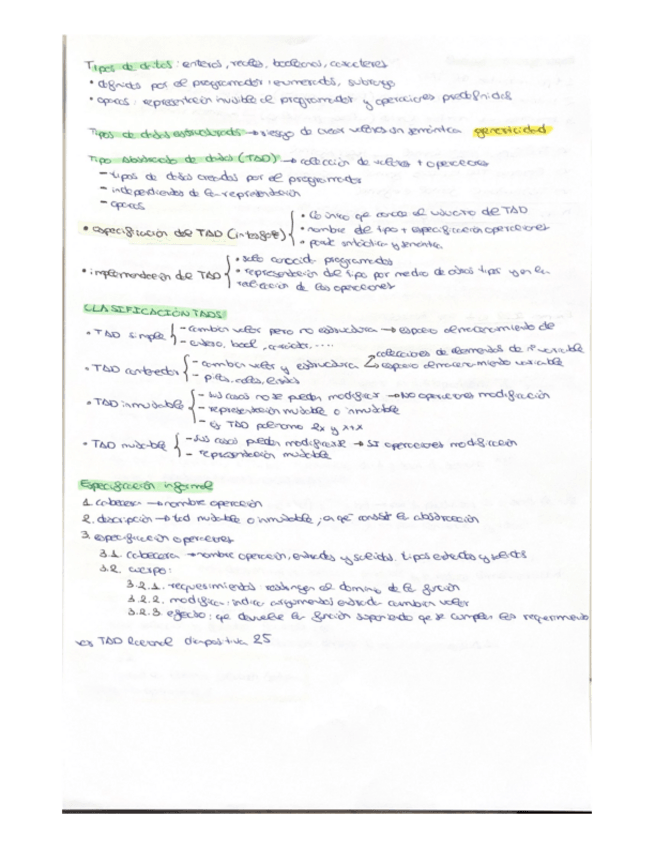 Tipos de datos: enteros, reales, booleanos, caracteres
• definidos por el programador: enumerados, subrango
• opacos: representación invisible al programador y operaciones predefinidas
Tipos de datos estructurados → riesgo de crear valores sin semántica genericidad
Tipo abstracto de datos (TAD) → colección de valores + operaciones
- tipos de datos creados por el programador
- independientes de la representación
- opacos
• especificación del TAD (interfaz)
• lo único que conoce el usuario de TAD
• nombre del tipo + especificación operaciones
• parte sintáctica y semántica
• implementación del TAD
• solo conocida programador
• representación del tipo por medio de otros tipos y en la
realización de las operaciones
CLASIFICACIÓN TADS
• TAD simple
- cambian valor pero no estructura → espacio almacenamiento cte
- entero, bool, carácter, ....
• TAD contenedor
- cambian valor y estructura
colecciones de elementos de nº variable
espacio almacenamiento variable
- pilas, colas, listas
• TAD inmutable
- sus casos no se pueden modificar → NO operaciones modificación
- representación mutable o inmutable
- ej TAD polinomio
• TAD mutable
- sus casos pueden modificarse → SI operaciones modificación
- representación mutable
Especificación informal
1. cabecera → nombre operación
2. descripción → tad mutable o inmutable, en qué consiste la abstracción
3. especificación operaciones
3.1. cabecera → nombre operación, entradas y salidas, tipos entrada y salida
3.2. cuerpo:
3.2.1. requerimientos: restringen el dominio de la función
3.2.2. modifica: indica argumentos entrada cambian valor
3.2.3. efecto: que devuelve la función suponiendo que se cumplen los requerimientos
TAD diapositiva 25